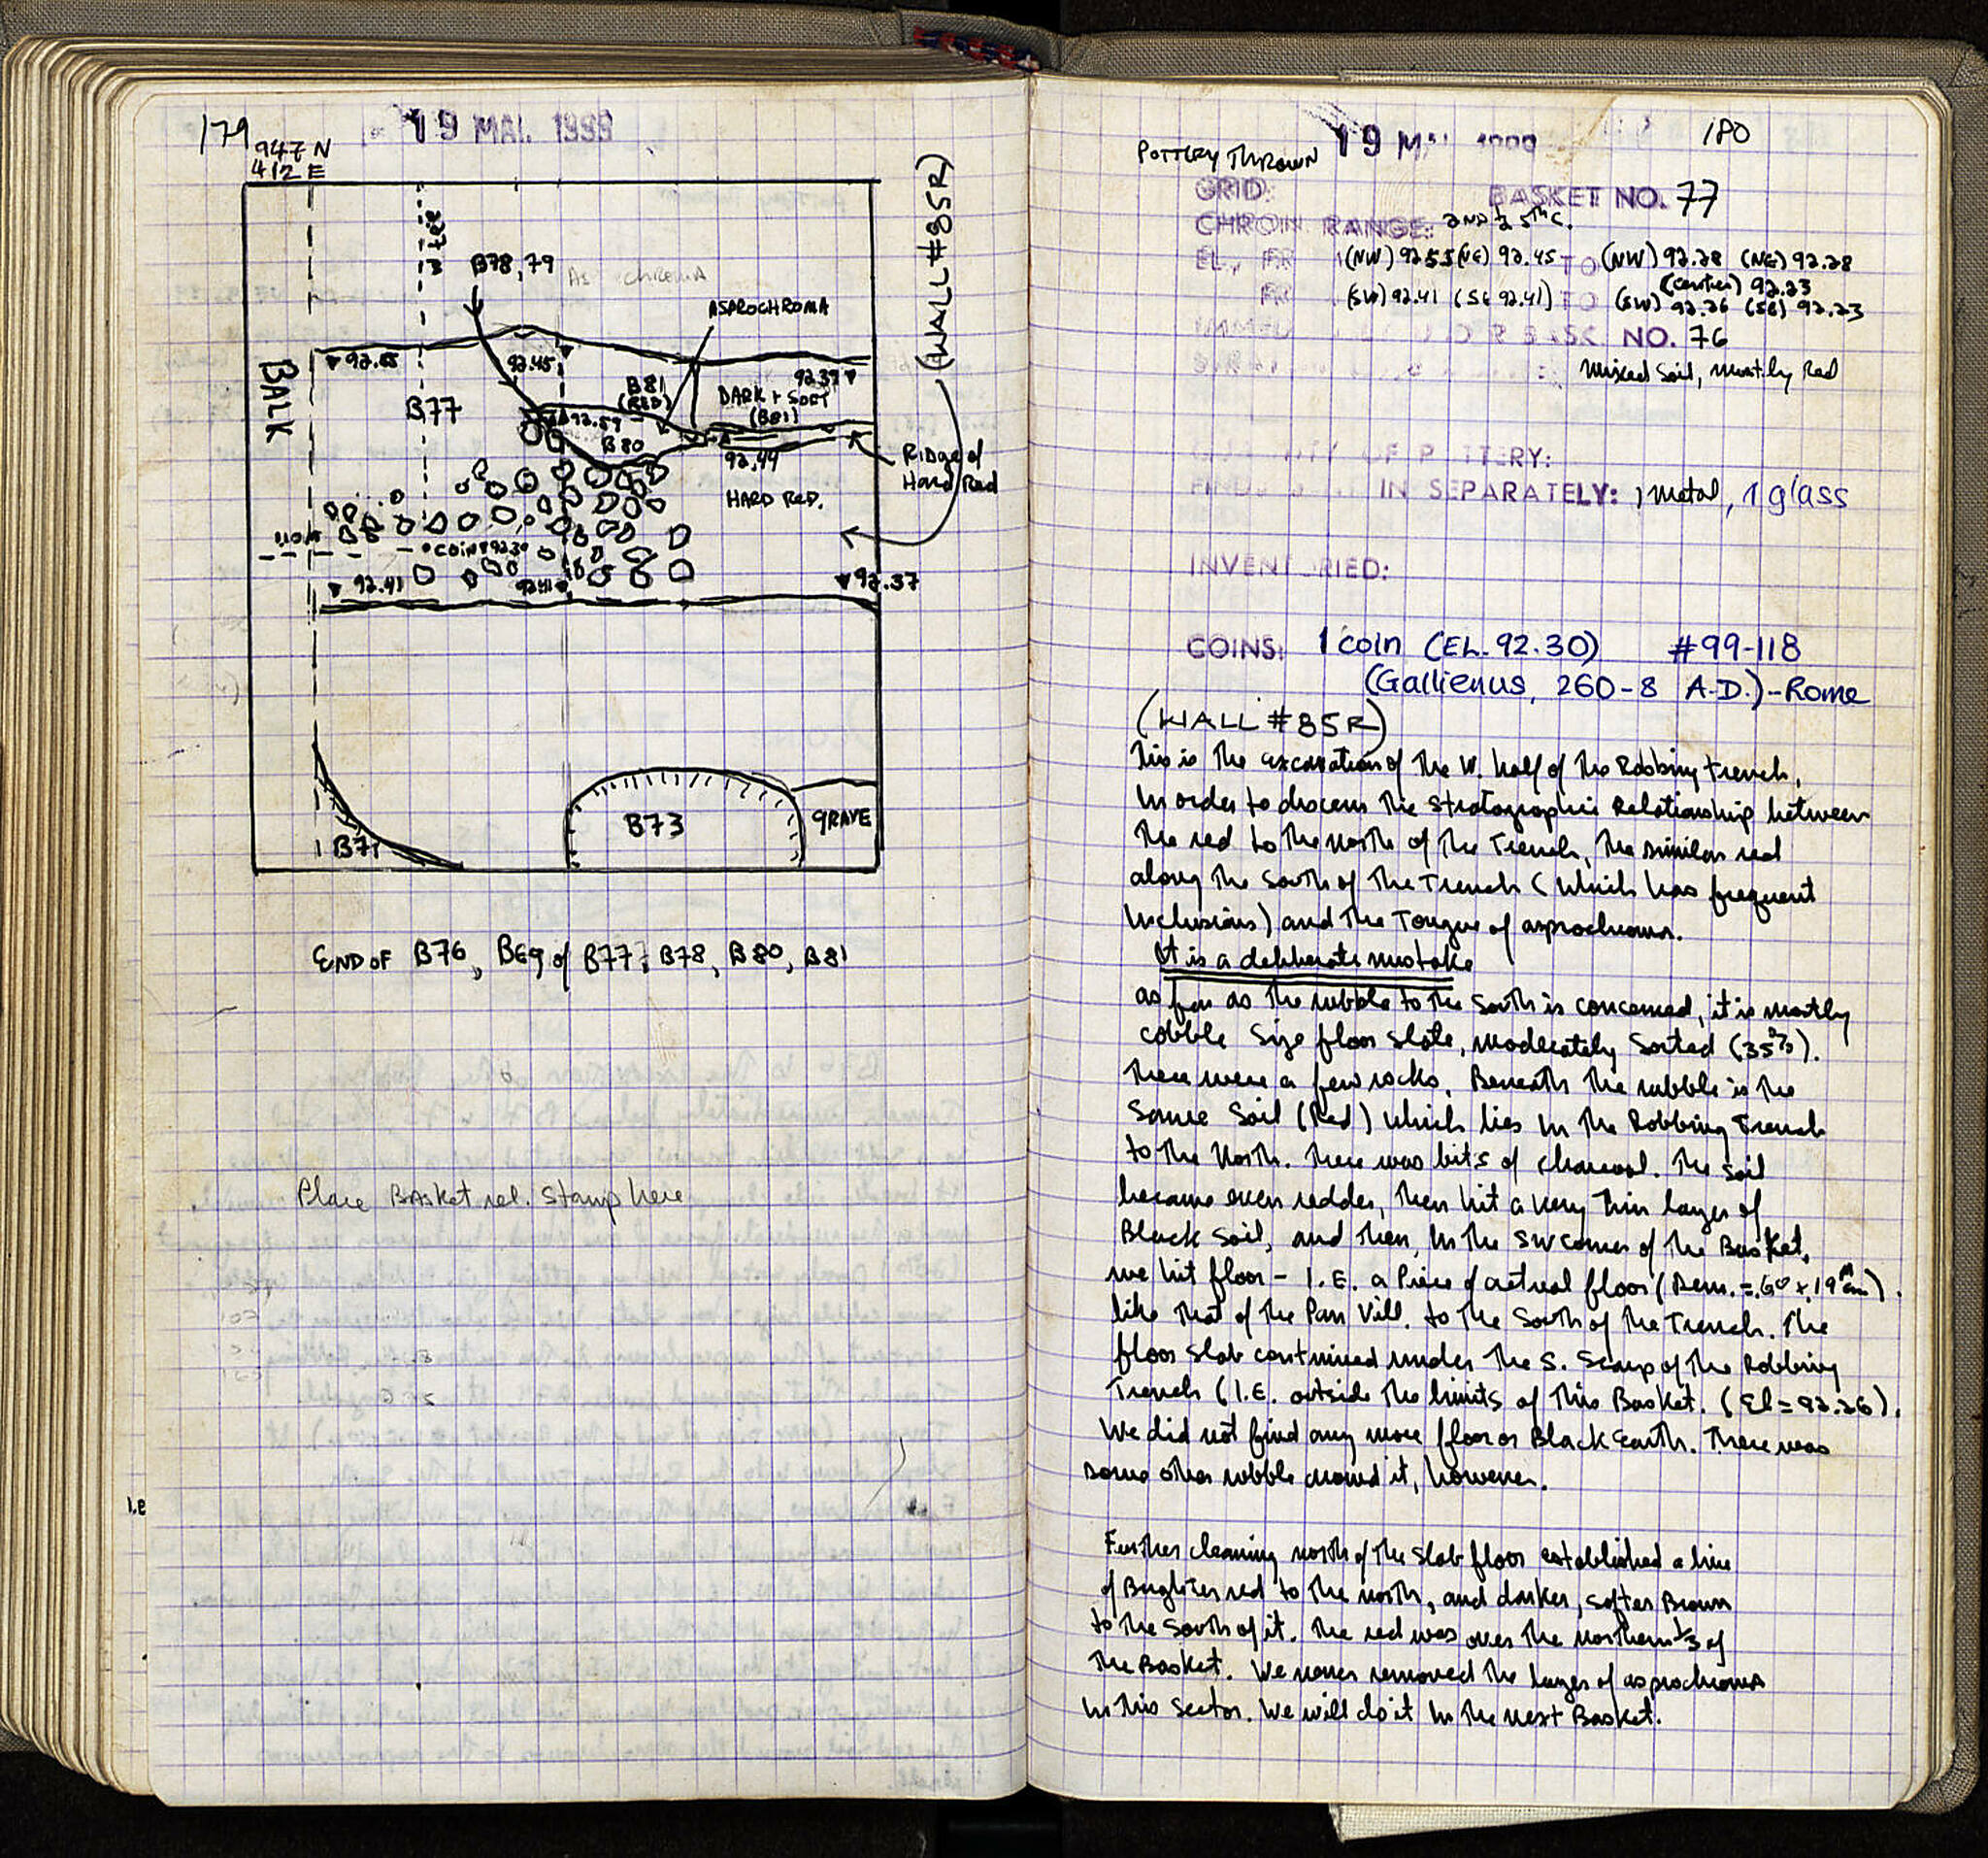 179
19 MAI. 1999
947 N
412 E
B78, 79
ASPROCHROMA
(WALL #85R)
BALK
92.45
92.39
B81
(RED)
DARK + SOFT
(B81)
B77
92.59
B80
92.44
Ridge of
Hard Red
HARD RED.
COIN 92.30
92.41
92.41
92.37
B71
B73
GRAVE
END OF B76, Beg of B77, B78, B80, B81
Place Basket rel. Stamp here
180
19 MAI 1999
POTTERY THROWN
GRID: BASKET NO. 77
CHRON. RANGE: 2ND ½ 5th C.
EL., FR (NW) 92.55 (NE) 92.45 TO (NW) 92.28 (NE) 92.28
(center) 92.23
FR (SW) 92.41 (SE 92.41) TO (SW) 92.26 (SE) 92.23
BASK. NO. 76
Mixed Soil, mostly Red
OF POTTERY:
IN SEPARATELY: 1 metal, 1 glass
INVENTORIED:
COINS: 1 coin (EL. 92.30) #99-118
(Gallienus, 260-8 A.D.)-Rome
(WALL #85R)
This is the excavation of the W. half of the Robbing trench,
In order to discern the stratographic Relationship between
the red to the north of the Trench, the similar red
along the South of the Trench (which has frequent
Inclusions) and the Tongue of asprochroma.
It is a deliberate mistake
as far as the rubble to the South is concerned, it is mostly
cobble size floor slate, moderately sorted (35%).
There were a few rocks. Beneath the rubble is the
same soil (Red) which lies in the Robbing Trench
to the North. There was bits of charcoal. The soil
became even redder, then hit a very thin layer of
Black Soil, and then, in the SW corner of the Basket,
we hit floor - I.E. a Piece of actual floor (Dem. = .60 x .19 m).
like that of the Pan Vill. to the South of the Trench. The
floor slab continued under the S. Scarp of the Robbing
Trench (I.E. outside the limits of this Basket. (El = 92.26).
We did not find any more floor or Black Earth. There was
some other rubble around it, however.
Further cleaning north of the Slab floor established a line
of Brighter red to the north, and darker, softer Brown
to the South of it. The red was over the northern 1/3 of
the Basket. We never removed the layer of asprochroma
in this sector. We will do it in the next Basket.